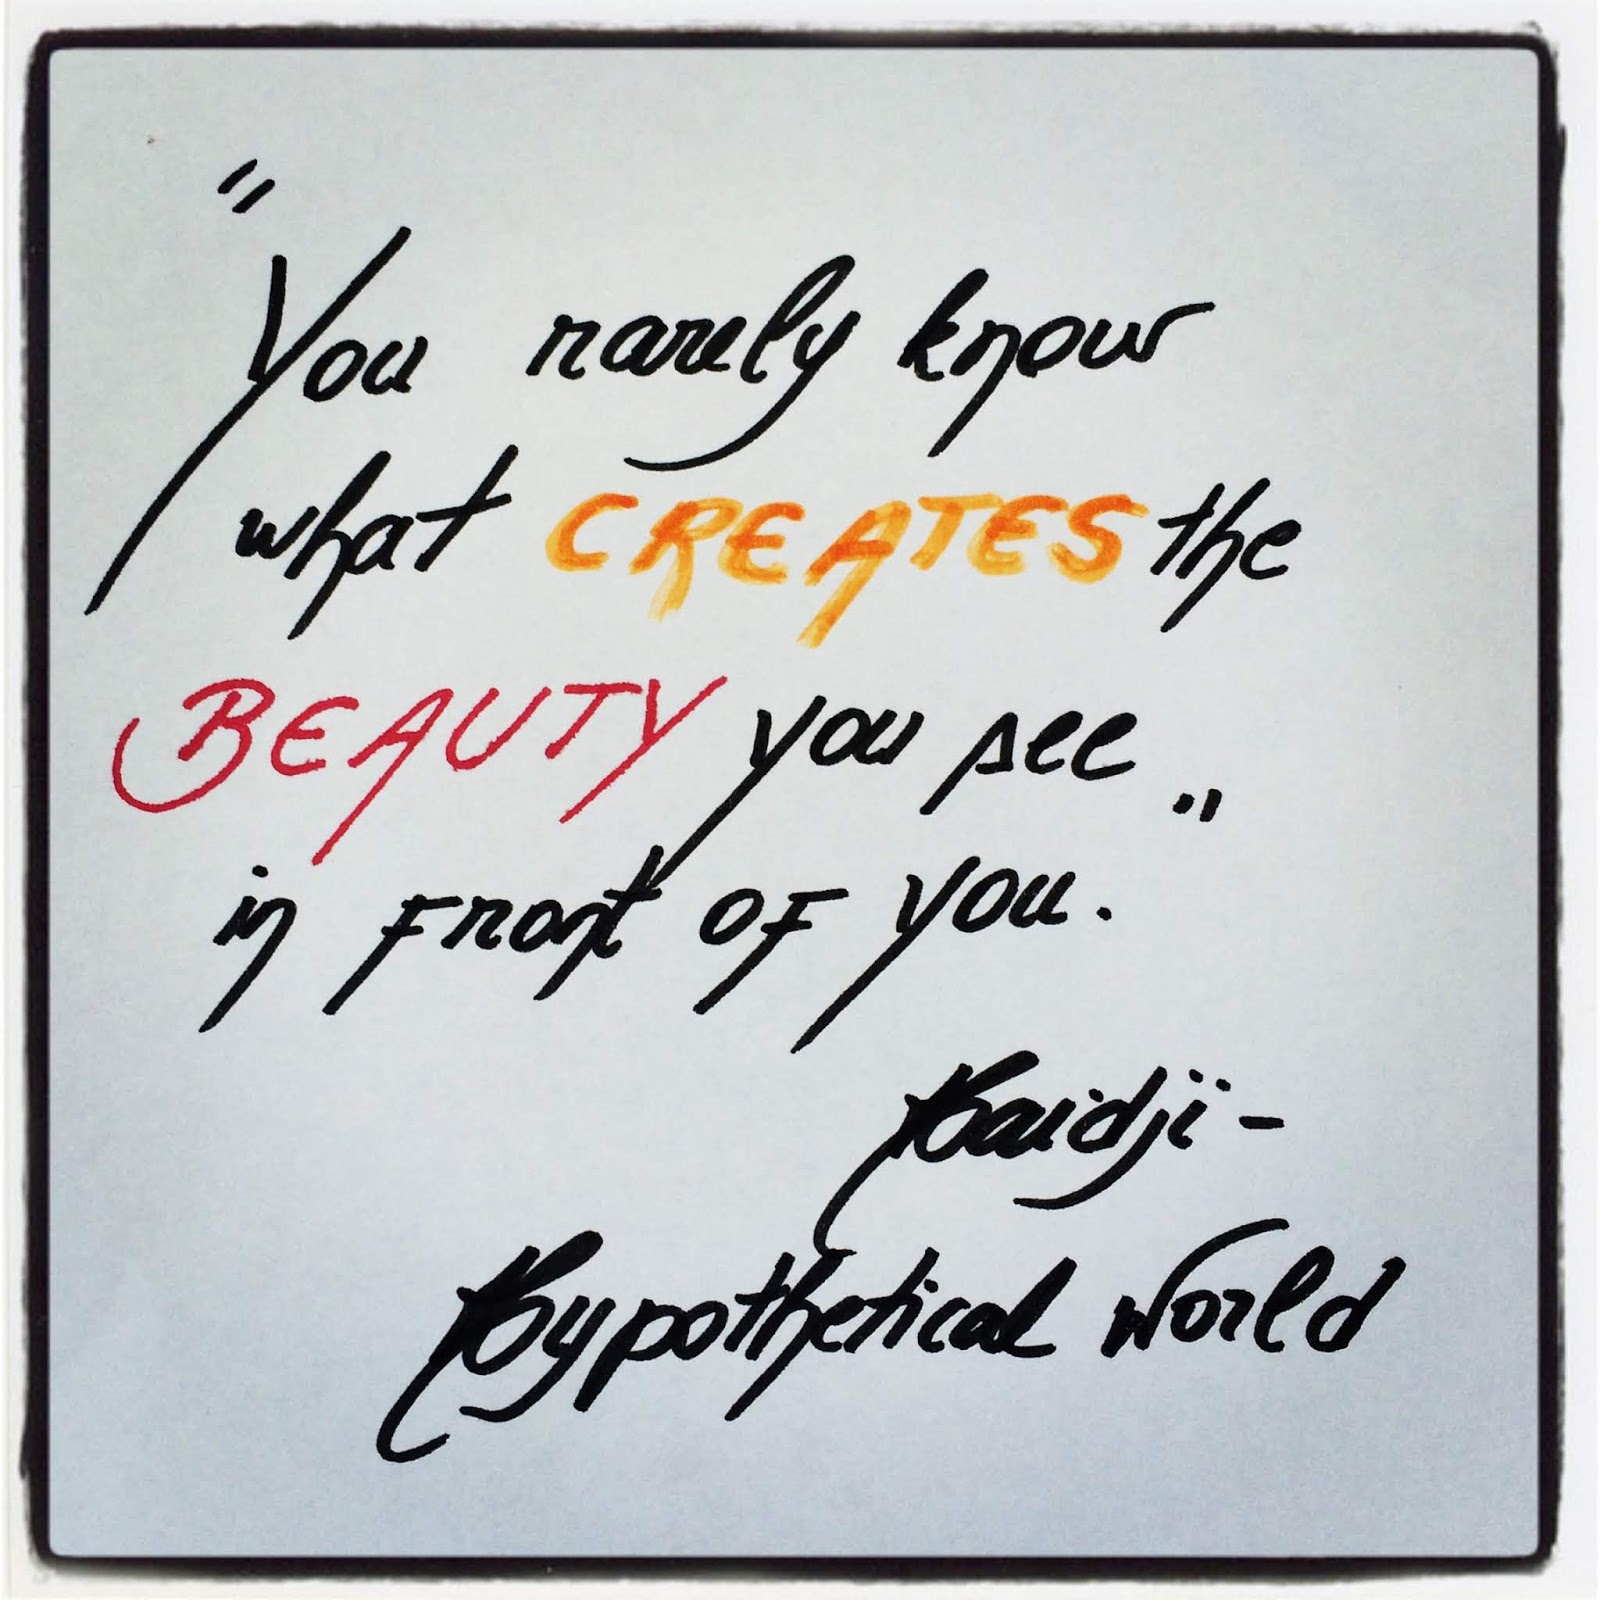 "You rarely know
what CREATES the
BEAUTY you see
in front of you."
Haidji -
Hypothetical World